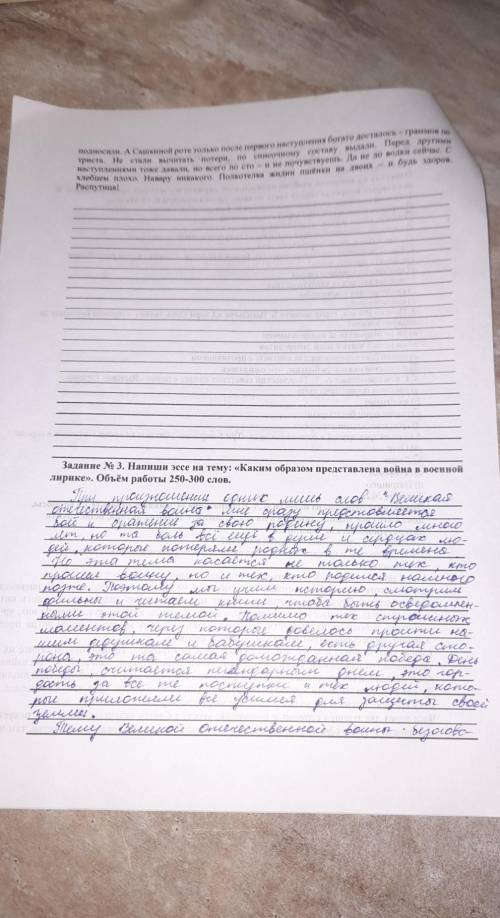 подносили. А Сашкиной роте только после первого наступления богато досталось – граммов по
триста. Не стали вычитать потери, по списочному составу выдали. Перед другими
наступлениями тоже давали, но всего по сто – и не почувствуешь. Да не до водки сейчас. С
хлебцем плохо. Навару никакого. Полкотелка жидни пшёнки на двоих – и будь здоров.
Распутица!
Задание № 3. Напиши эссе на тему: «Каким образом представлена война в военной
лирике». Объём работы 250-300 слов.
При произношении одних лишь слов "Великая
отечественная война" мне сразу представляется
бой и сражение за свою родину, прошло много
лет, но та боль всё ещё в душе и сердцах лю-
дей, которые потеряли родных в те времена.
Но эта тема касается не только тех, кто
прошел войну, но и тех, кто родился намного
позже. Поэтому мы учим историю, смотрим
фильмы и читаем книги, чтобы быть осведомлен-
ными этой темой. Помимо тех страшных
моментов, через которые довелось пройти на-
шим дедушкам и бабушкам, есть другая сто-
рона, это та самая долгожданная победа. День
победы, считается легендарным днем, это гор-
дость за все те поступки и тех людей, кото-
рые приложили все усилия для защиты своей
земли.
Тему Великой отечественной войны безогово-